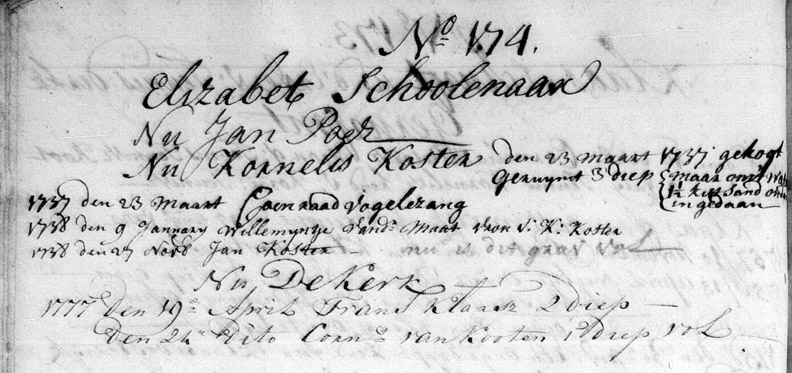 No 174.
Elizabet Schoolenaar
Nu Jan Poeh
Nu Kornelis Koster den 23 maart 1737 gekogt
Geruymt 3 diep maar om
1½ kis sand
ingedaan
1737 den 23 maart Coenraad Vogelezang
1738 den 9 January Willemyntje Sands Maat vrou v: K: Koster
1738 den 27 Novb Jan Koster – nu is dit graf vol
Nu De Kerk
1777 den 19e April Frans Klaasz 2 diep –
den 24e Dito Corns van Kooten 1 diep vol